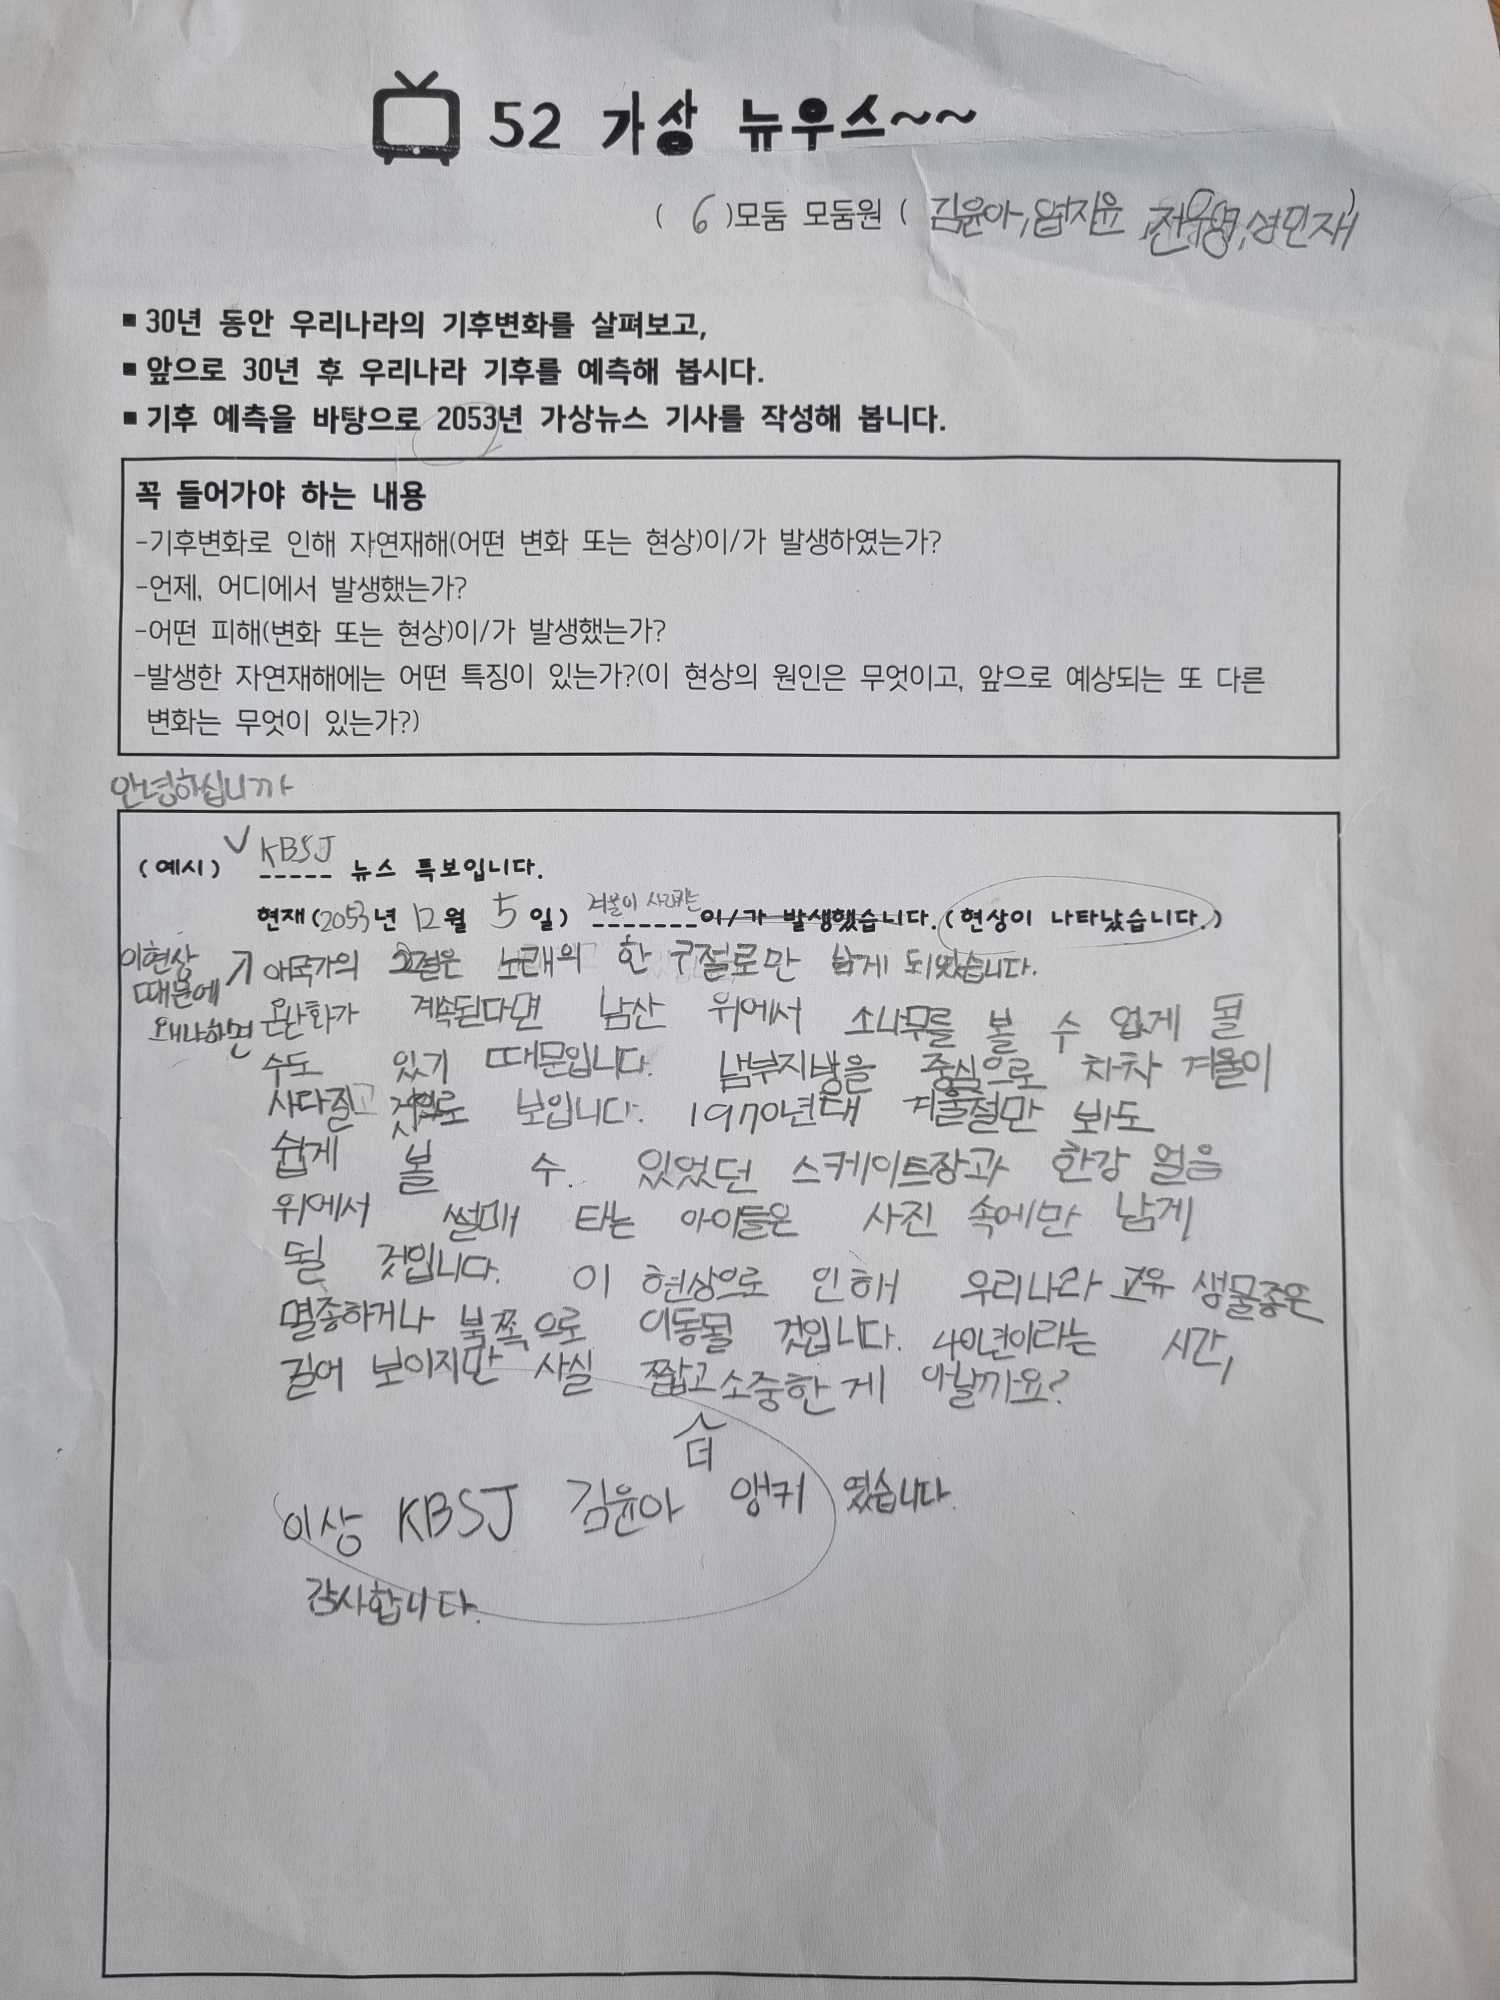 52 가상 뉴우스~~
( 6 )모둠 모둠원 ( 김윤아, 엽지윤, 전유영, 성민재)
▪ 30년 동안 우리나라의 기후변화를 살펴보고,
▪ 앞으로 30년 후 우리나라 기후를 예측해 봅시다.
▪ 기후 예측을 바탕으로 2053년 가상뉴스 기사를 작성해 봅니다.
꼭 들어가야 하는 내용
-기후변화로 인해 자연재해(어떤 변화 또는 현상)이/가 발생하였는가?
-언제, 어디에서 발생했는가?
-어떤 피해(변화 또는 현상)이/가 발생했는가?
-발생한 자연재해에는 어떤 특징이 있는가?(이 현상의 원인은 무엇이고, 앞으로 예상되는 또 다른
변화는 무엇이 있는가?)
안녕하십니까
(예시) KBSJ 뉴스 특보입니다.
현재(2053년 12월 5일) 겨울이 사라지는 이/가 발생했습니다. (현상이 나타났습니다.)
이현상 때문에 애국가의 2절은 노래의 한 구절로만 남게 되었습니다.
왜냐하면 온난화가 계속된다면 남산 위에서 소나무를 볼 수 없게 될
수도 있기 때문입니다. 남부지방을 중심으로 차차 겨울이
사라질 것으로 보입니다. 1970년대 겨울철만 봐도
쉽게 볼 수 있었던 스케이트장과 한강 얼음
위에서 썰매 타는 아이들은 사진 속에만 남게
될 것입니다. 이 현상으로 인해 우리나라 고유 생물종은
멸종하거나 북쪽으로 이동될 것입니다. 40년이라는 시간,
길어 보이지만 사실 짧고 소중한 게 아닐까요?
더
이상 KBSJ 김윤아 앵커 였습니다.
감사합니다.